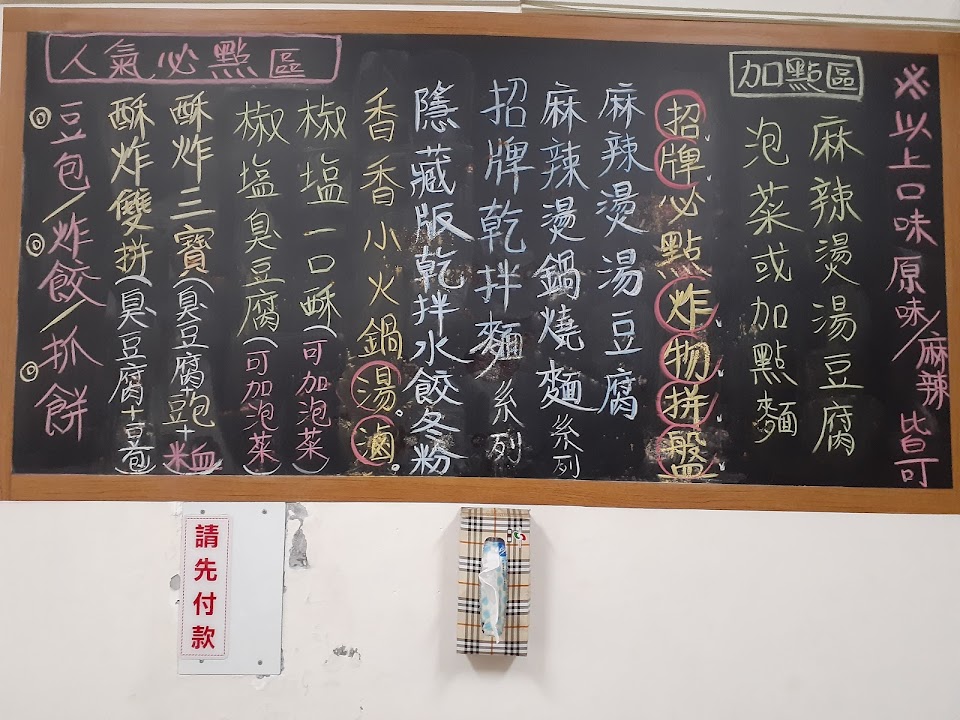 ※以上口味原味/麻辣皆可
加點區
麻辣燙湯豆腐
泡菜或加點麵
招牌必點炸物拼盤
麻辣燙湯豆腐
麻辣燙鍋燒麵系列
招牌乾拌麵系列
隱藏版乾拌水餃冬粉
香香小火鍋湯。滷。
人氣必點區
椒塩一口酥(可加泡菜)
椒塩臭豆腐(可加泡菜)
酥炸三寶(臭豆腐+豆包+米血)
酥炸雙拼(臭豆腐+豆包)
◎豆包/◎炸餃/◎抓餅
請先付款